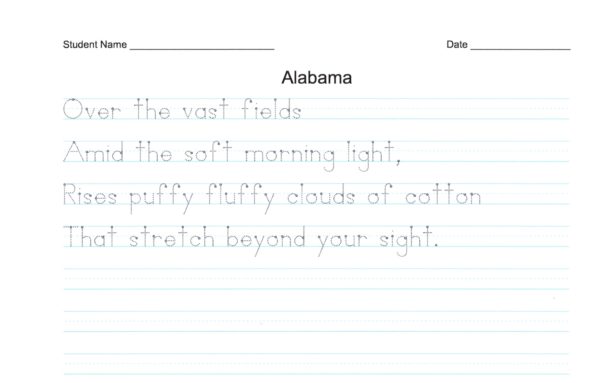 Student Name
Date
Alabama
Over the vast fields
Amid the soft morning light,
Rises puffy fluffy clouds of cotton
That stretch beyond your sight.